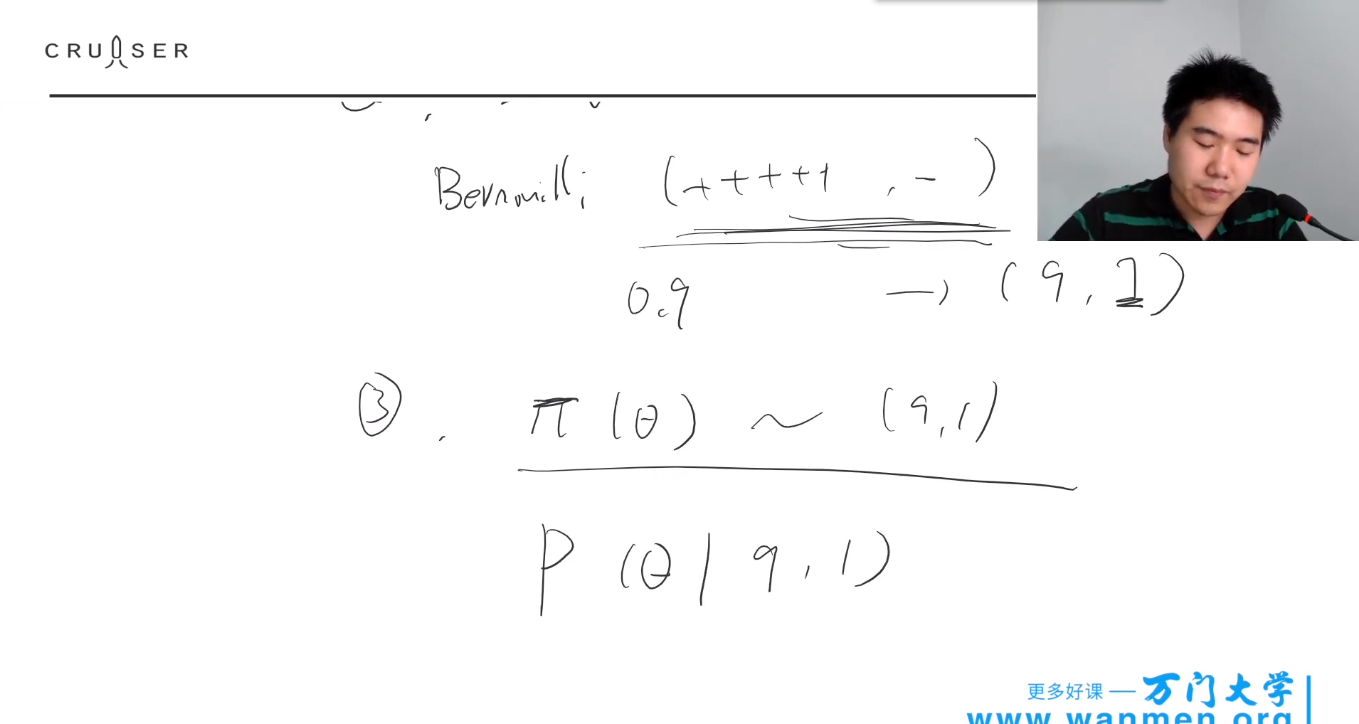 CRUISER
Bernoulli (+++++ , - )
0.9 → (9, 1)
③. π(θ) ~ (9,1)
P(θ | 9, 1)
更多好课 — 万门大学
www.wanmen.org